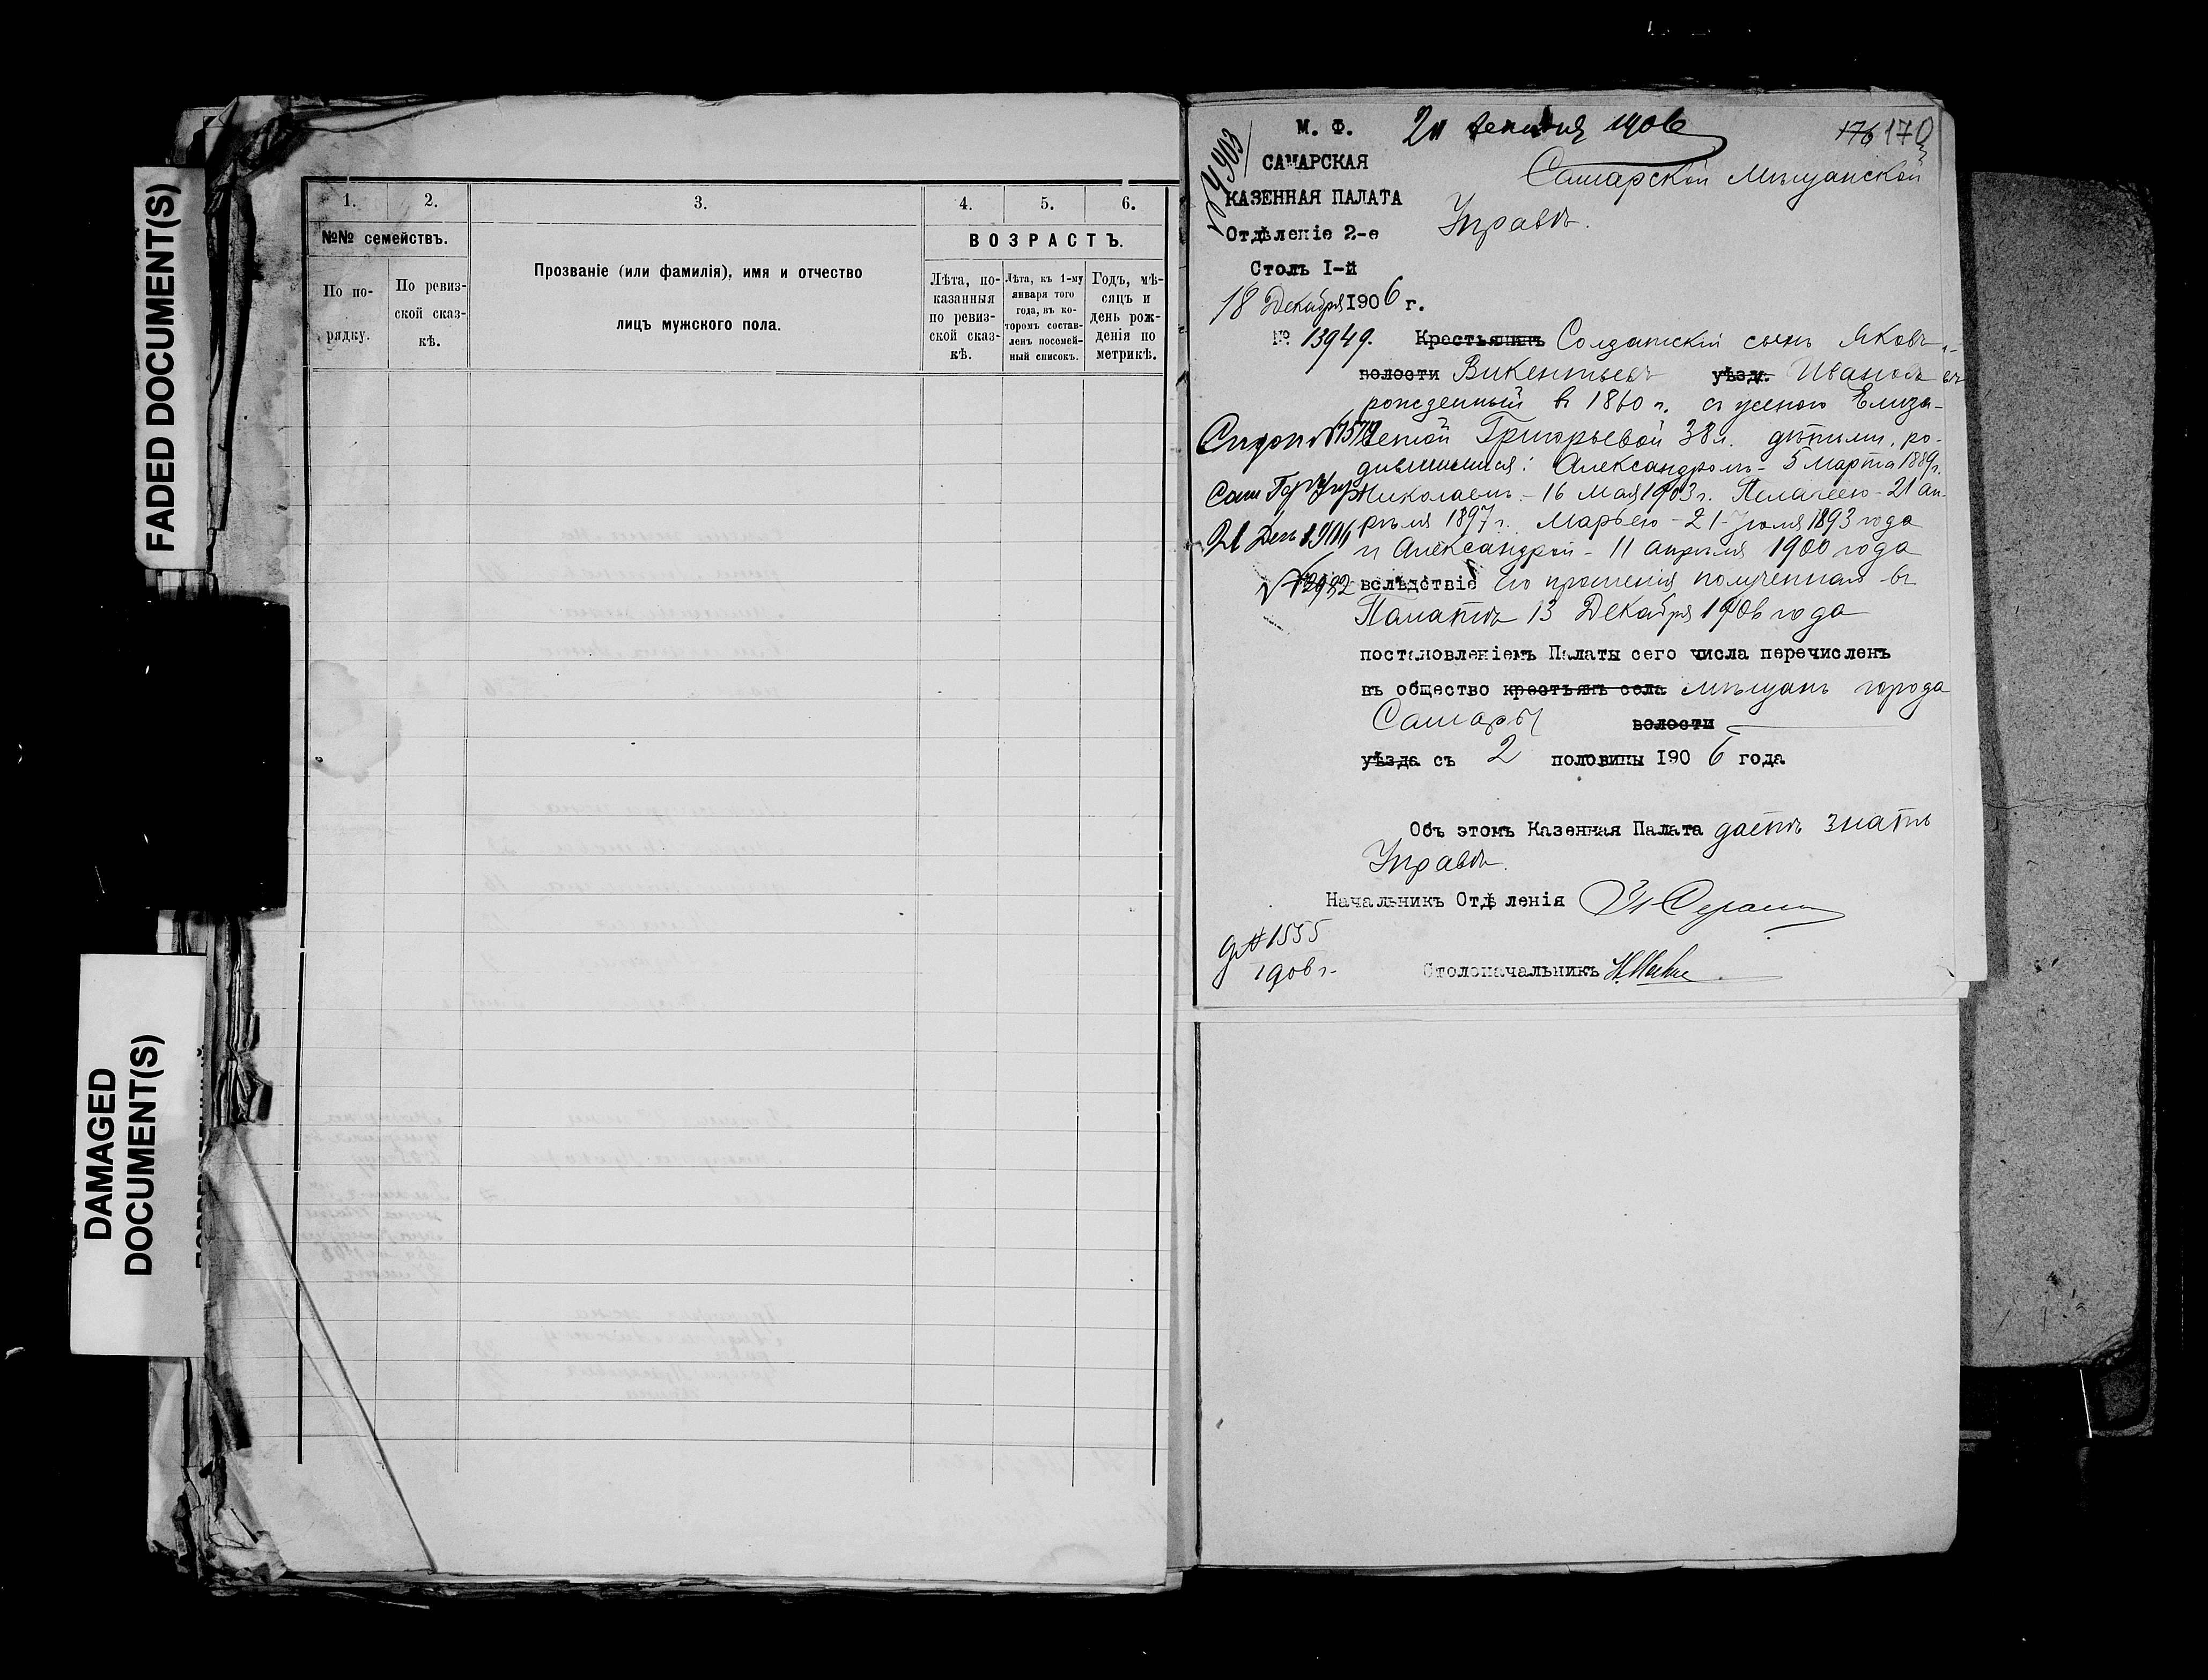 FADED DOCUMENT(S)
DAMAGED
DOCUMENT(S)
1. 2. 3. 4. 5. 6.
№№ семействъ.
По по-
рядку.
По ревиз-
ской сказ-
кѣ.
Прозваніе (или фамилія), имя и отчество
лицъ мужского пола.
ВОЗРАСТЪ.
Лѣта, по-
казанныя
по ревиз-
ской сказ-
кѣ.
Лѣта, къ 1-му
января того
года, въ ко-
торомъ состав-
ленъ посемей-
ный списокъ.
Годъ, мѣ-
сяцъ и
день рож-
денія по
метрикѣ.
М. Ф.
САМАРСКАЯ
КАЗЕННАЯ ПАЛАТА
Отдѣленіе 2-е
Столъ I-й
18 Декабря 1906 г.
№ 13949.
декабря 1906
176 170
Самарской Мѣщанской
Управѣ.
Крестьянинъ Солдатскій сынъ Яковъ
волости Викентьевъ уѣзд. Ивановъ
рожденный въ 1860 г. съ женою Елиза-
ветой Григорьевой 38 л. дѣтьми, ро-
дившимися: Александромъ - 5 Марта 1889 г.
Николаемъ - 16 Мая 1903 г. Пелагеею - 21 ап-
рѣля 1897 г. Марьею - 21 Іюля 1893 года
и Александрой - 11 апрѣля 1900 года
вслѣдствіе его прошенія полученнаго въ
Палатѣ 13 Декабря 1906 года
постановленіемъ Палаты сего числа перечисленъ
въ общество крестьянъ села мѣщанъ города
Самары волости
уѣзда съ 2 половины 1906 года
Объ этомъ Казенная Палата даетъ знать
Управѣ.
Начальникъ Отдѣленія
Столоначальникъ
д. № 1555
1906 г.